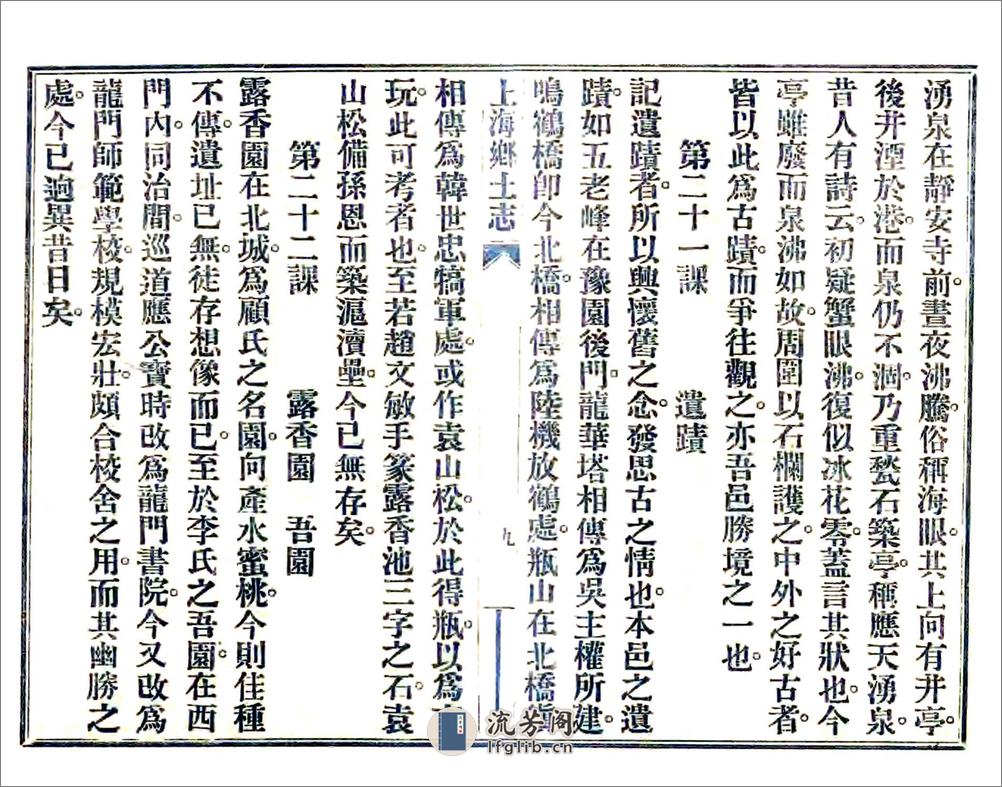 湧泉在靜安寺前。晝夜沸騰。俗稱海眼。其上向有井亭。
後井湮於港。而泉仍不涸。乃重甃石築亭。稱應天湧泉。
昔人有詩云。初疑蟹眼沸。復似冰花零。蓋言其狀也。今
亭雖廢而泉沸如故。周圍以石欄護之。中外之好古者。
皆以此爲古蹟。而爭往觀之。亦吾邑勝境之一也。
第二十一課　遺蹟
記遺蹟者。所以興懷舊之念。發思古之情也。本邑之遺
蹟。如五老峰在豫園後門。龍華塔相傳爲吳主權所建。
鳴鶴橋卽今北橋。相傳爲陸機放鶴處。瓶山在北橋
上海鄉土志
九
相傳爲韓世忠犒軍處。或作袁山松。於此得瓶。以爲
玩。此可考者也。至若趙文敏手篆露香池三字之石。袁
山松備孫恩而築滬瀆壘。今已無存矣。
第二十二課　露香園　吾園
露香園在北城。爲顧氏之名園。向產水蜜桃。今則佳種
不傳。遺址已無。徒存想像而已。至於李氏之吾園。在西
門內。同治間。巡道應公寶時改爲龍門書院。今又改爲
龍門師範學校。規模宏壯。頗合校舍之用。而其幽勝之
處。今已逈異昔日矣。
流芳閣
lfglib.cn